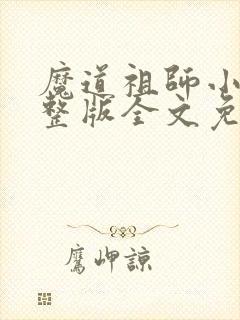 魔道祖師小
整版全文免
鷹岬諒